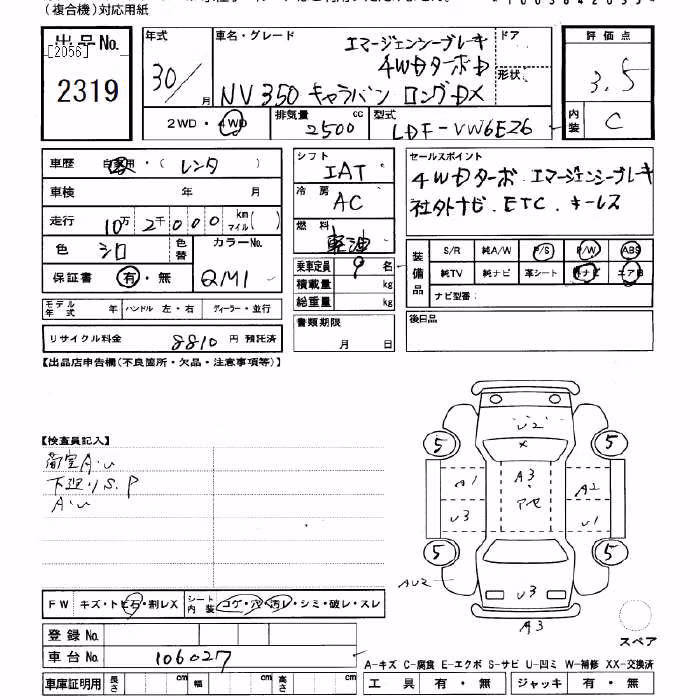 (複合機)対応用紙
出品No.
[2056]
2319
年式
30/
月
車名・グレード
エマージェンシーブレーキ
4WDターボD
NV350 キャラバン ロングDX
ドア
形状
評価点
3.5
内装
C
2WD・4WD
排気量
2500
cc
型式
LDF-VW6E26
車歴
自家用・(レンタ)
車検
年
月
走行
10万2千000
km
マイル
( )
色
シロ
色替
カラーNo.
QM1
保証書
有・無
モデル年式
年
ハンドル 左・右
ディーラー・並行
リサイクル料金
8810
円 預託済
シフト
IAT
冷房
AC
燃料
軽油
乗車定員
9
名
積載量
kg
総重量
kg
書類期限
月
日
セールスポイント
4WDターボ. エマージェンシーブレーキ
社外ナビ. ETC. キーレス
装備品
S/R
純A/W
P/S
P/W
ABS
純TV
純ナビ
革シート
ナビ型番:
後日品
【出品店申告欄(不良箇所・欠品・注意事項等)】
【検査員記入】
荷室A・U
下廻りS.P
A・U
U2
×
5
5
A1
A3
A2
アセ
U3
U1
5
5
AU2
U3
A3
スペア
FW
キズ・トビ石・割レX
シート内装
コゲ・穴・汚レ・シミ・破レ・スレ
登録No.
車台No.
106027
車庫証明用
長さ
cm
幅
cm
高さ
cm
A-キズ C-腐食 E-エクボ S-サビ U-凹ミ W-補修 XX-交換済
工具
有・無
ジャッキ
有・無